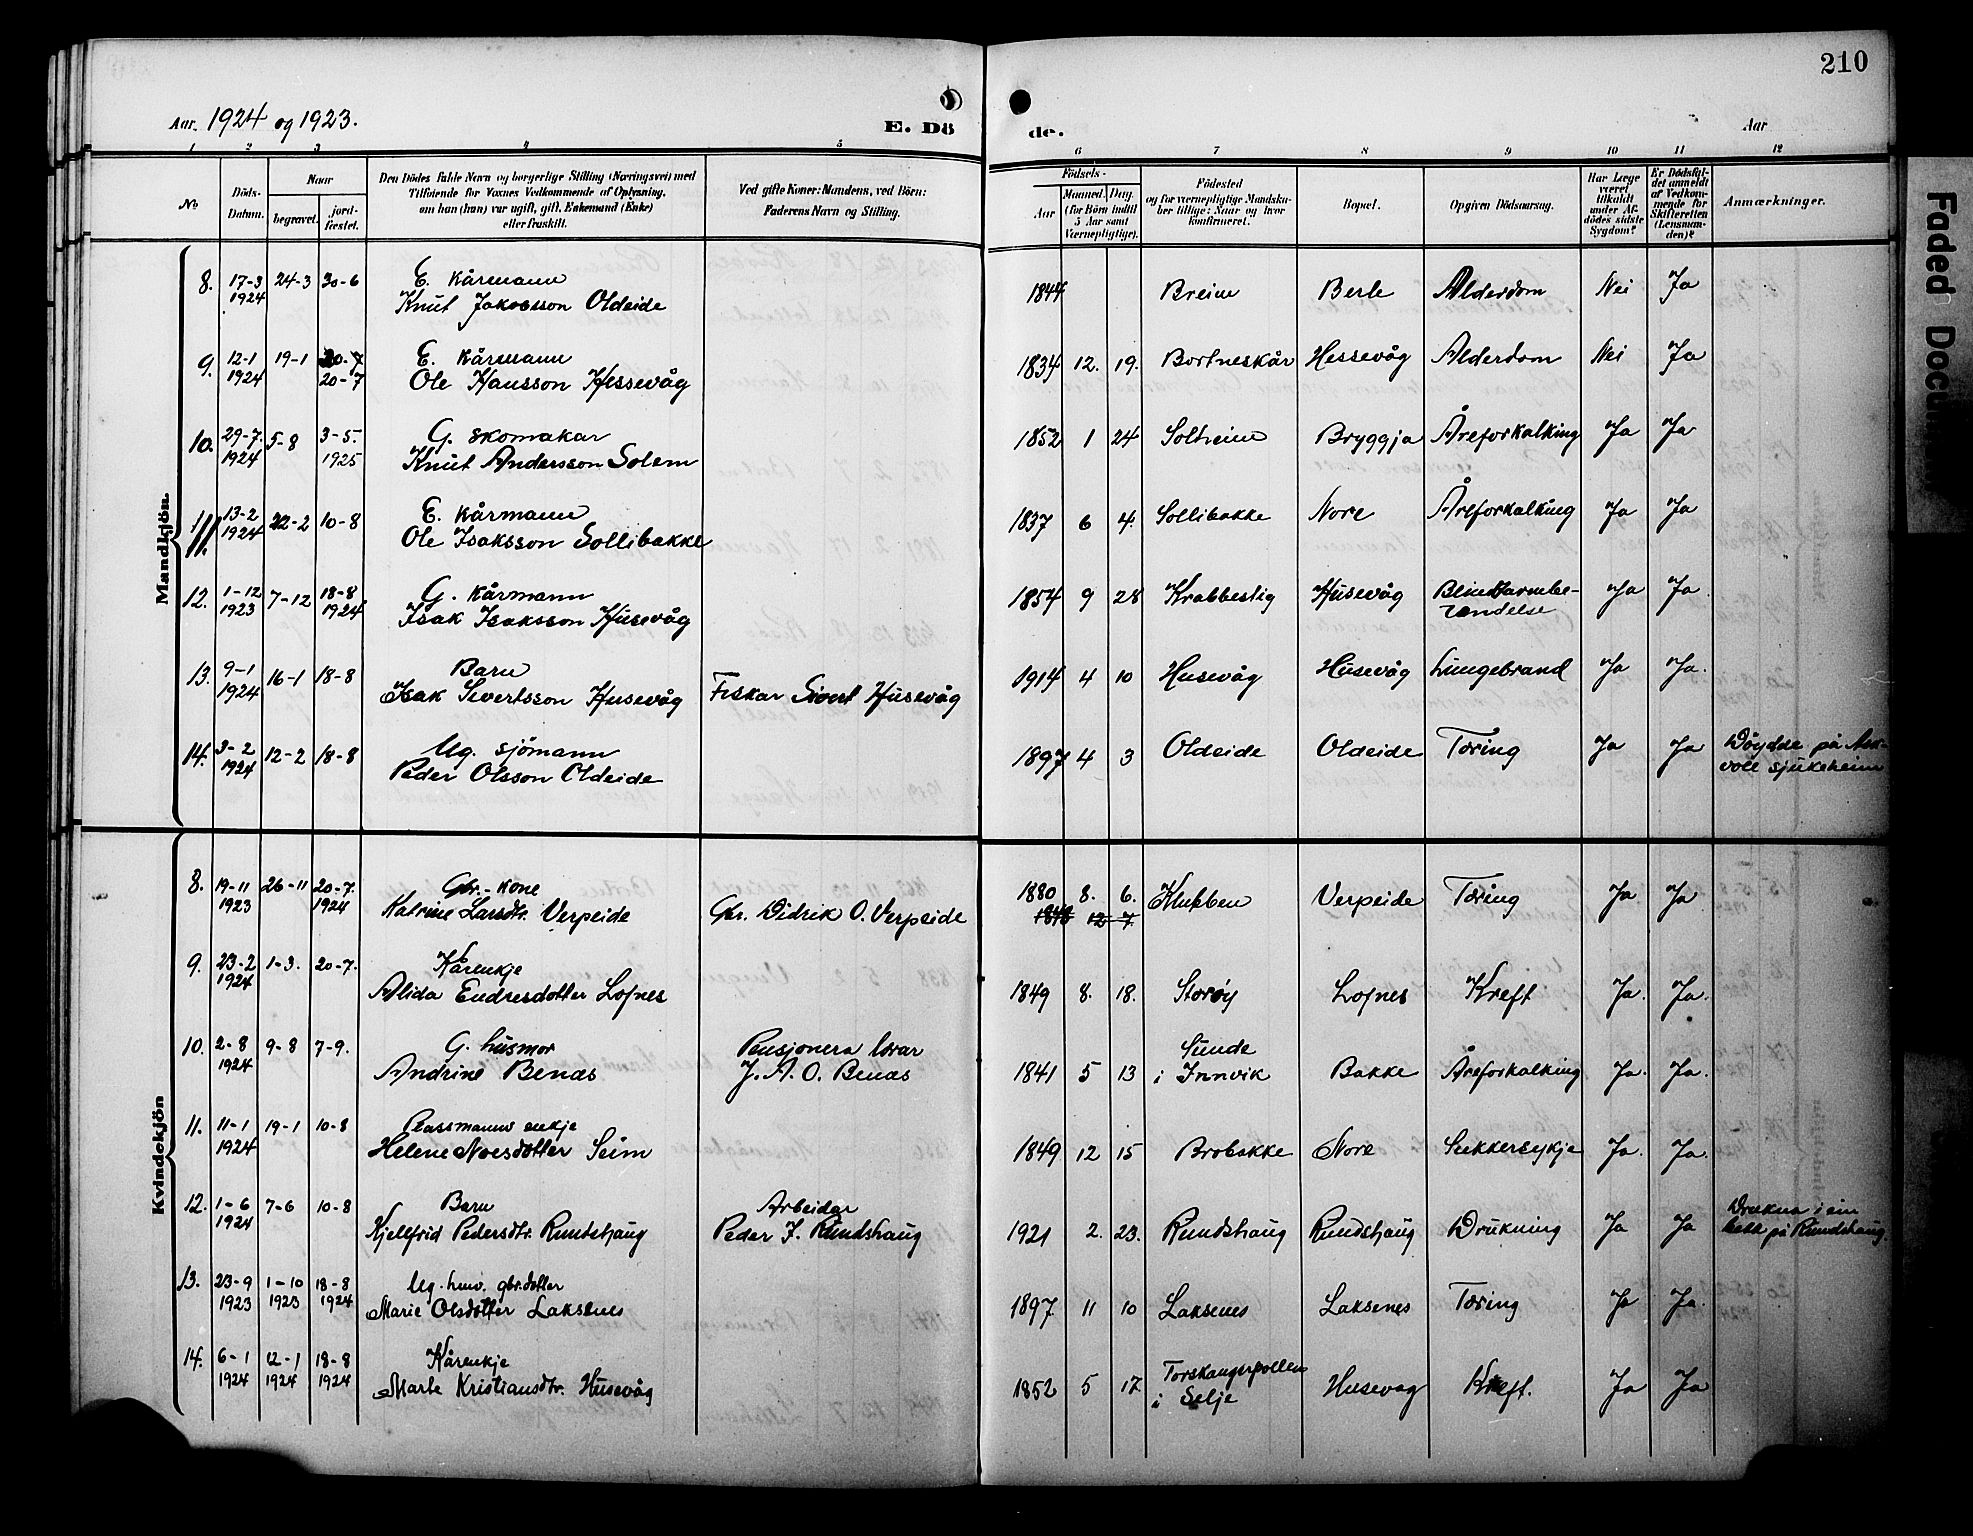 210
Aar. 1924 og 1923.
E. Dö
de.
Aar
1 2 3 4 5 6 7 8 9 10 11 12
No
Döds-
Datum.
Naar
begravet.
jord-
fæstet.
Den Dödes fulde Navn og borgerlige Stilling (Næringsvei) med
Tilföiende for Voxnes Vedkommende af Oplysning,
om han (hun) var ugift, gift, Enkemand (Enke)
eller fraskilt.
Ved gifte Koner: Mandens, ved Börn:
Faderens Navn og Stilling.
Födsels-
Aar
Maaned. Dag.
(for Börn indtil
5 Aar samt
Værnepligtige).
Födested
og for værnepligtige Mandska-
ber tillige: Naar og hvor
konfirmeret.
Bopæl.
Opgiven Dödsaarsag.
Har Læge
været
tilkaldt
under Af-
dödes sidste
Sygdom?
Er Dödsfal-
det anmeldt
af Vedkom-
mende for
Skifteretten
(Lensman-
den)?
Anmærkninger.
Mandkjön.
8. 17-3 1924 24-3 20-6 E. Kårmann
Knut Jakobsson Oldeide 1844 Breim Berle Alderdom Nei Ja
9. 12-1 1924 19-1 20-7 20-7 E. Kårmann
Ole Hansson Hessevåg 1834 12. 19. Bortneskår Hessevåg Alderdom Nei Ja
10. 29-7. 1924 5-8 3-5. 1925 G. skomakar
Knut Andersson Solem 1852 1 24 Solheim Bryggja Åreforkalking Ja Ja
11. 13-2 1924 22-2 10-8 E. Kårmann
Ole Isaksson Sollibakke 1837 6 4. Sollibakke Nore Åreforkalking Ja Ja
12. 1-12 1923 7-12 18-8 1924. G. Kårmann
Isak Isaksson Husevåg 1854 9 28 Krabbestig Husevåg Blindtarmbe-
tendelse Ja Ja
13. 9-1 1924 16-1 18-8 Barn
Isak Sivertsson Husevåg Fiskar Sivert Husevåg 1914 4 10 Husevåg Husevåg Lungebrand Ja Ja.
14. 3-2 1924 12-2 18-8 Ug. sjömann
Peder Olsson Oldeide 1897 4 3 Oldeide Oldeide Tæring Ja Ja Döydde på Ask-
voll sjukeheim
Kvindekjön
8. 19-11 1923 26-11 20-7. 1924 Gbr.-kone
Katrine Larsdtr. Verpeide Gbr. Didrik O. Verpeide 1880 8. 6. 12 7. Klubben Verpeide Tæring Ja Ja
9. 23-2 1924 1-3. 20-7. Kårenkje
Alida Endresdotter Lofnes 1849 8. 18. Storöy Lofnes Kreft Ja. Ja.
10. 2-8 1924 9-8 7-9. G. husmor
Andrine Benæs Pensjonera lærar
J. A. O. Benæs 1841 5 13 Sunde
i Innvik Bakke Åreforkalking Ja. Ja.
11. 11-1 1924 19-1 10-8 Plassmanns enkje
Helene Moesdotter Seim 1849 12 15 Brobakke Nore Sukkersykje Ja. Ja.
12. 1-6 1924 7-6 10-8 Barn
Kjellfrid Pedersdtr. Rundshaug Arbeidar
Peder J. Rundshaug 1921 2. 23. Rundshaug Rundshaug Drukning Ja Ja Drukna i ein
bekk på Rundshaug.
13. 23-9 1923 1-10 1923 18-8 1924 Ug. gbr.dotter
Marie Olsdotter Laksenes 1897 11 10 Laksenes Laksenes Tæring Ja Ja.
14. 6-1 1924 12-1 1924 18-8 1924 Kårenkje
Marte Kristiansdtr. Husevåg 1852 5 17. Torskangerpollen
i Selje Husevåg Kreft. Ja Ja
Faded